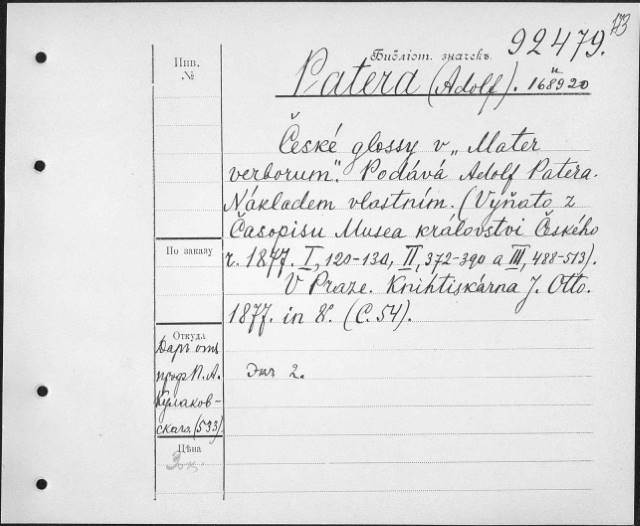 173
Инв.
№
Библіот. значекъ
92479.
и
Patera (Adolf). 168920
České glossy v „Mater
verborum“. Podává Adolf Patera.
Nákladem vlastním. (Vyňato z
Časopisu Musea království Českého
r. 1877. I, 120-130, II, 372-390 a III, 488-513).
V Praze. Knihtiskárna J. Otto.
1877. in 8º. (C. 54).
По заказу
Откуда
Даръ отъ
проф. П. А.
Кулаков-
скаго (533).
Экз 2.
Цѣна